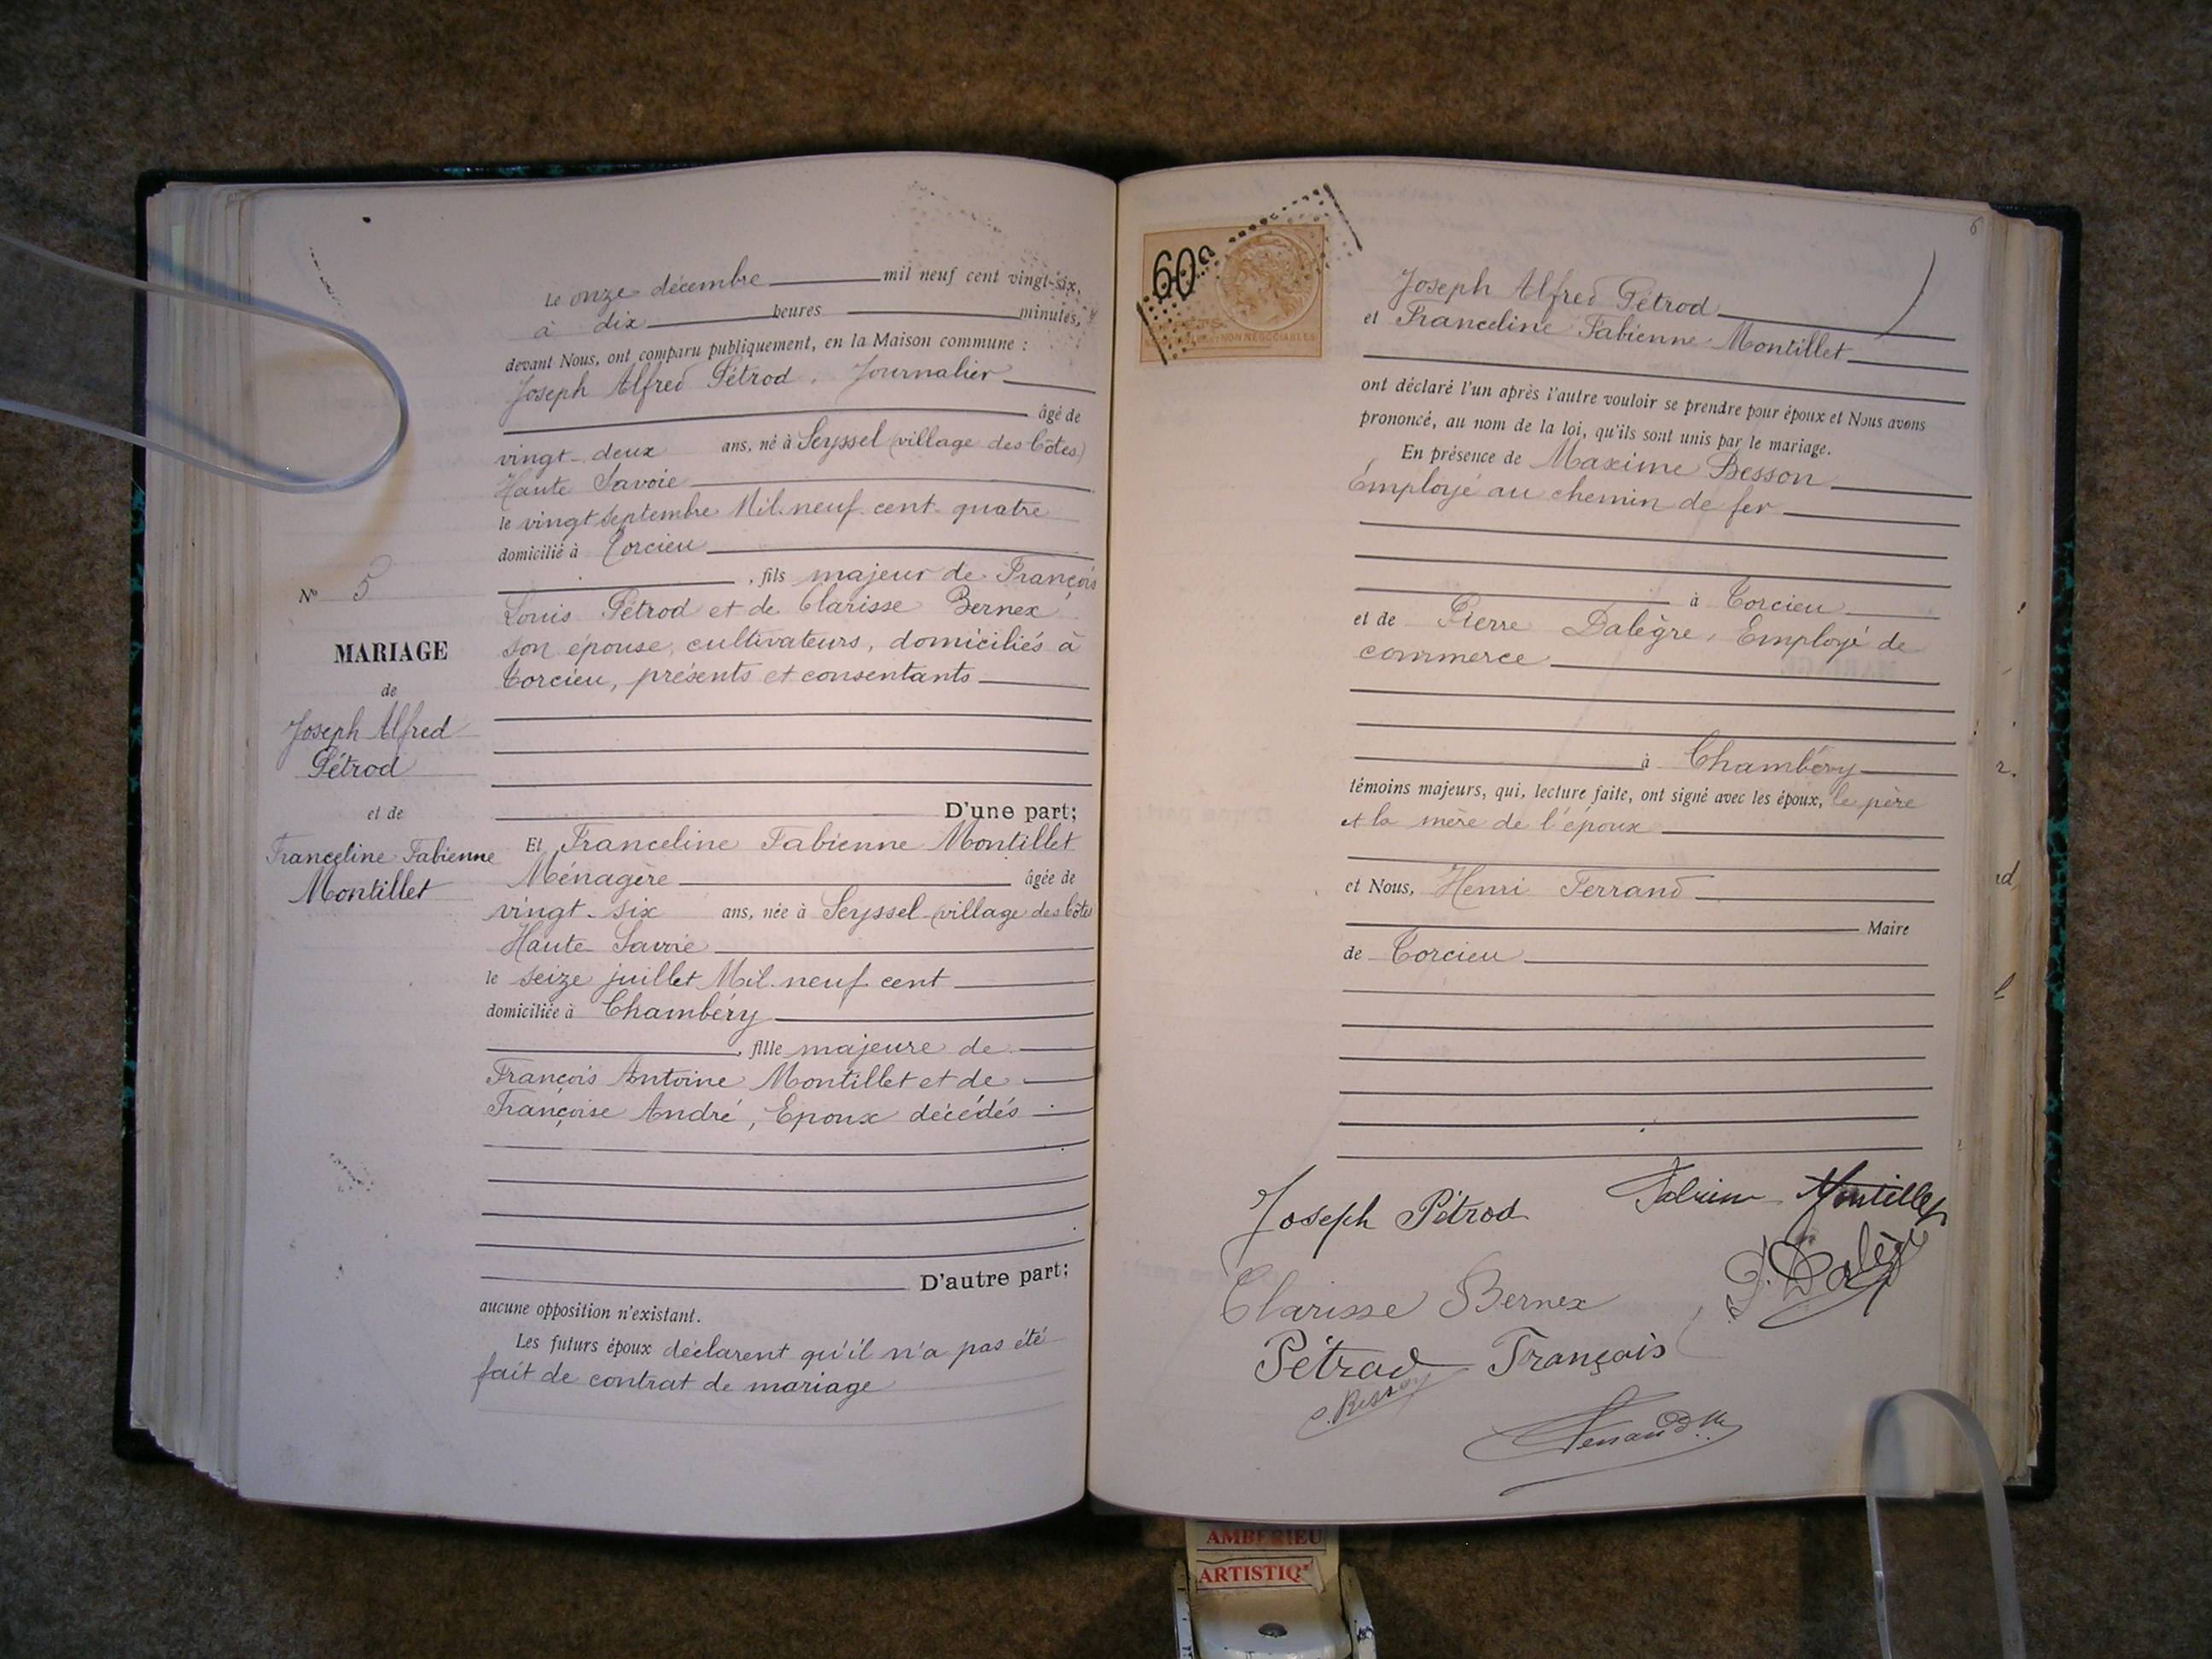 Le onze décembre mil neuf cent vingt-six,
à dix heures minutes,
devant Nous, ont comparu publiquement, en la Maison commune :
Joseph Alfred Pétrod, Journalier
âgé de
vingt-deux ans, né à Seyssel (village des Côtes)
Haute Savoie
le vingt septembre Mil neuf cent quatre
domicilié à Torcieu
, fils majeur de François
Louis Pétrod et de Clarisse Bernex,
son épouse, cultivateurs, domiciliés à
Torcieu, présents et consentants
D'une part;
Et Franceline Fabienne Montillet
Ménagère âgée de
vingt-six ans, née à Seyssel (village des Côtes
Haute Savoie
le seize juillet Mil neuf cent
domiciliée à Chambéry
, fille majeure de
François Antoine Montillet et de
Françoise André, Epoux décédés
D'autre part;
aucune opposition n'existant.
Les futurs époux déclarent qu'il n'a pas été
fait de contrat de mariage
N° 5
MARIAGE
de
Joseph Alfred
Pétrod
et de
Franceline Fabienne
Montillet
6
60c
NON NÉGOCIABLES
Joseph Alfred Pétrod
et Franceline Fabienne Montillet
ont déclaré l'un après l'autre vouloir se prendre pour époux et Nous avons
prononcé, au nom de la loi, qu'ils sont unis par le mariage.
En présence de Maxime Besson
Employé au chemin de fer
à Torcieu
et de Pierre Dalègre, Employé de
commerce
à Chambéry
témoins majeurs, qui, lecture faite, ont signé avec les époux, le père
et la mère de l'époux
et Nous, Henri Ferrand
Maire
de Torcieu
Joseph Pétrod Montillet
P. Dalègre
Clarisse Bernex
Pétrod François
Besson
Ferrand
AMBERIEU
ARTISTIQ'